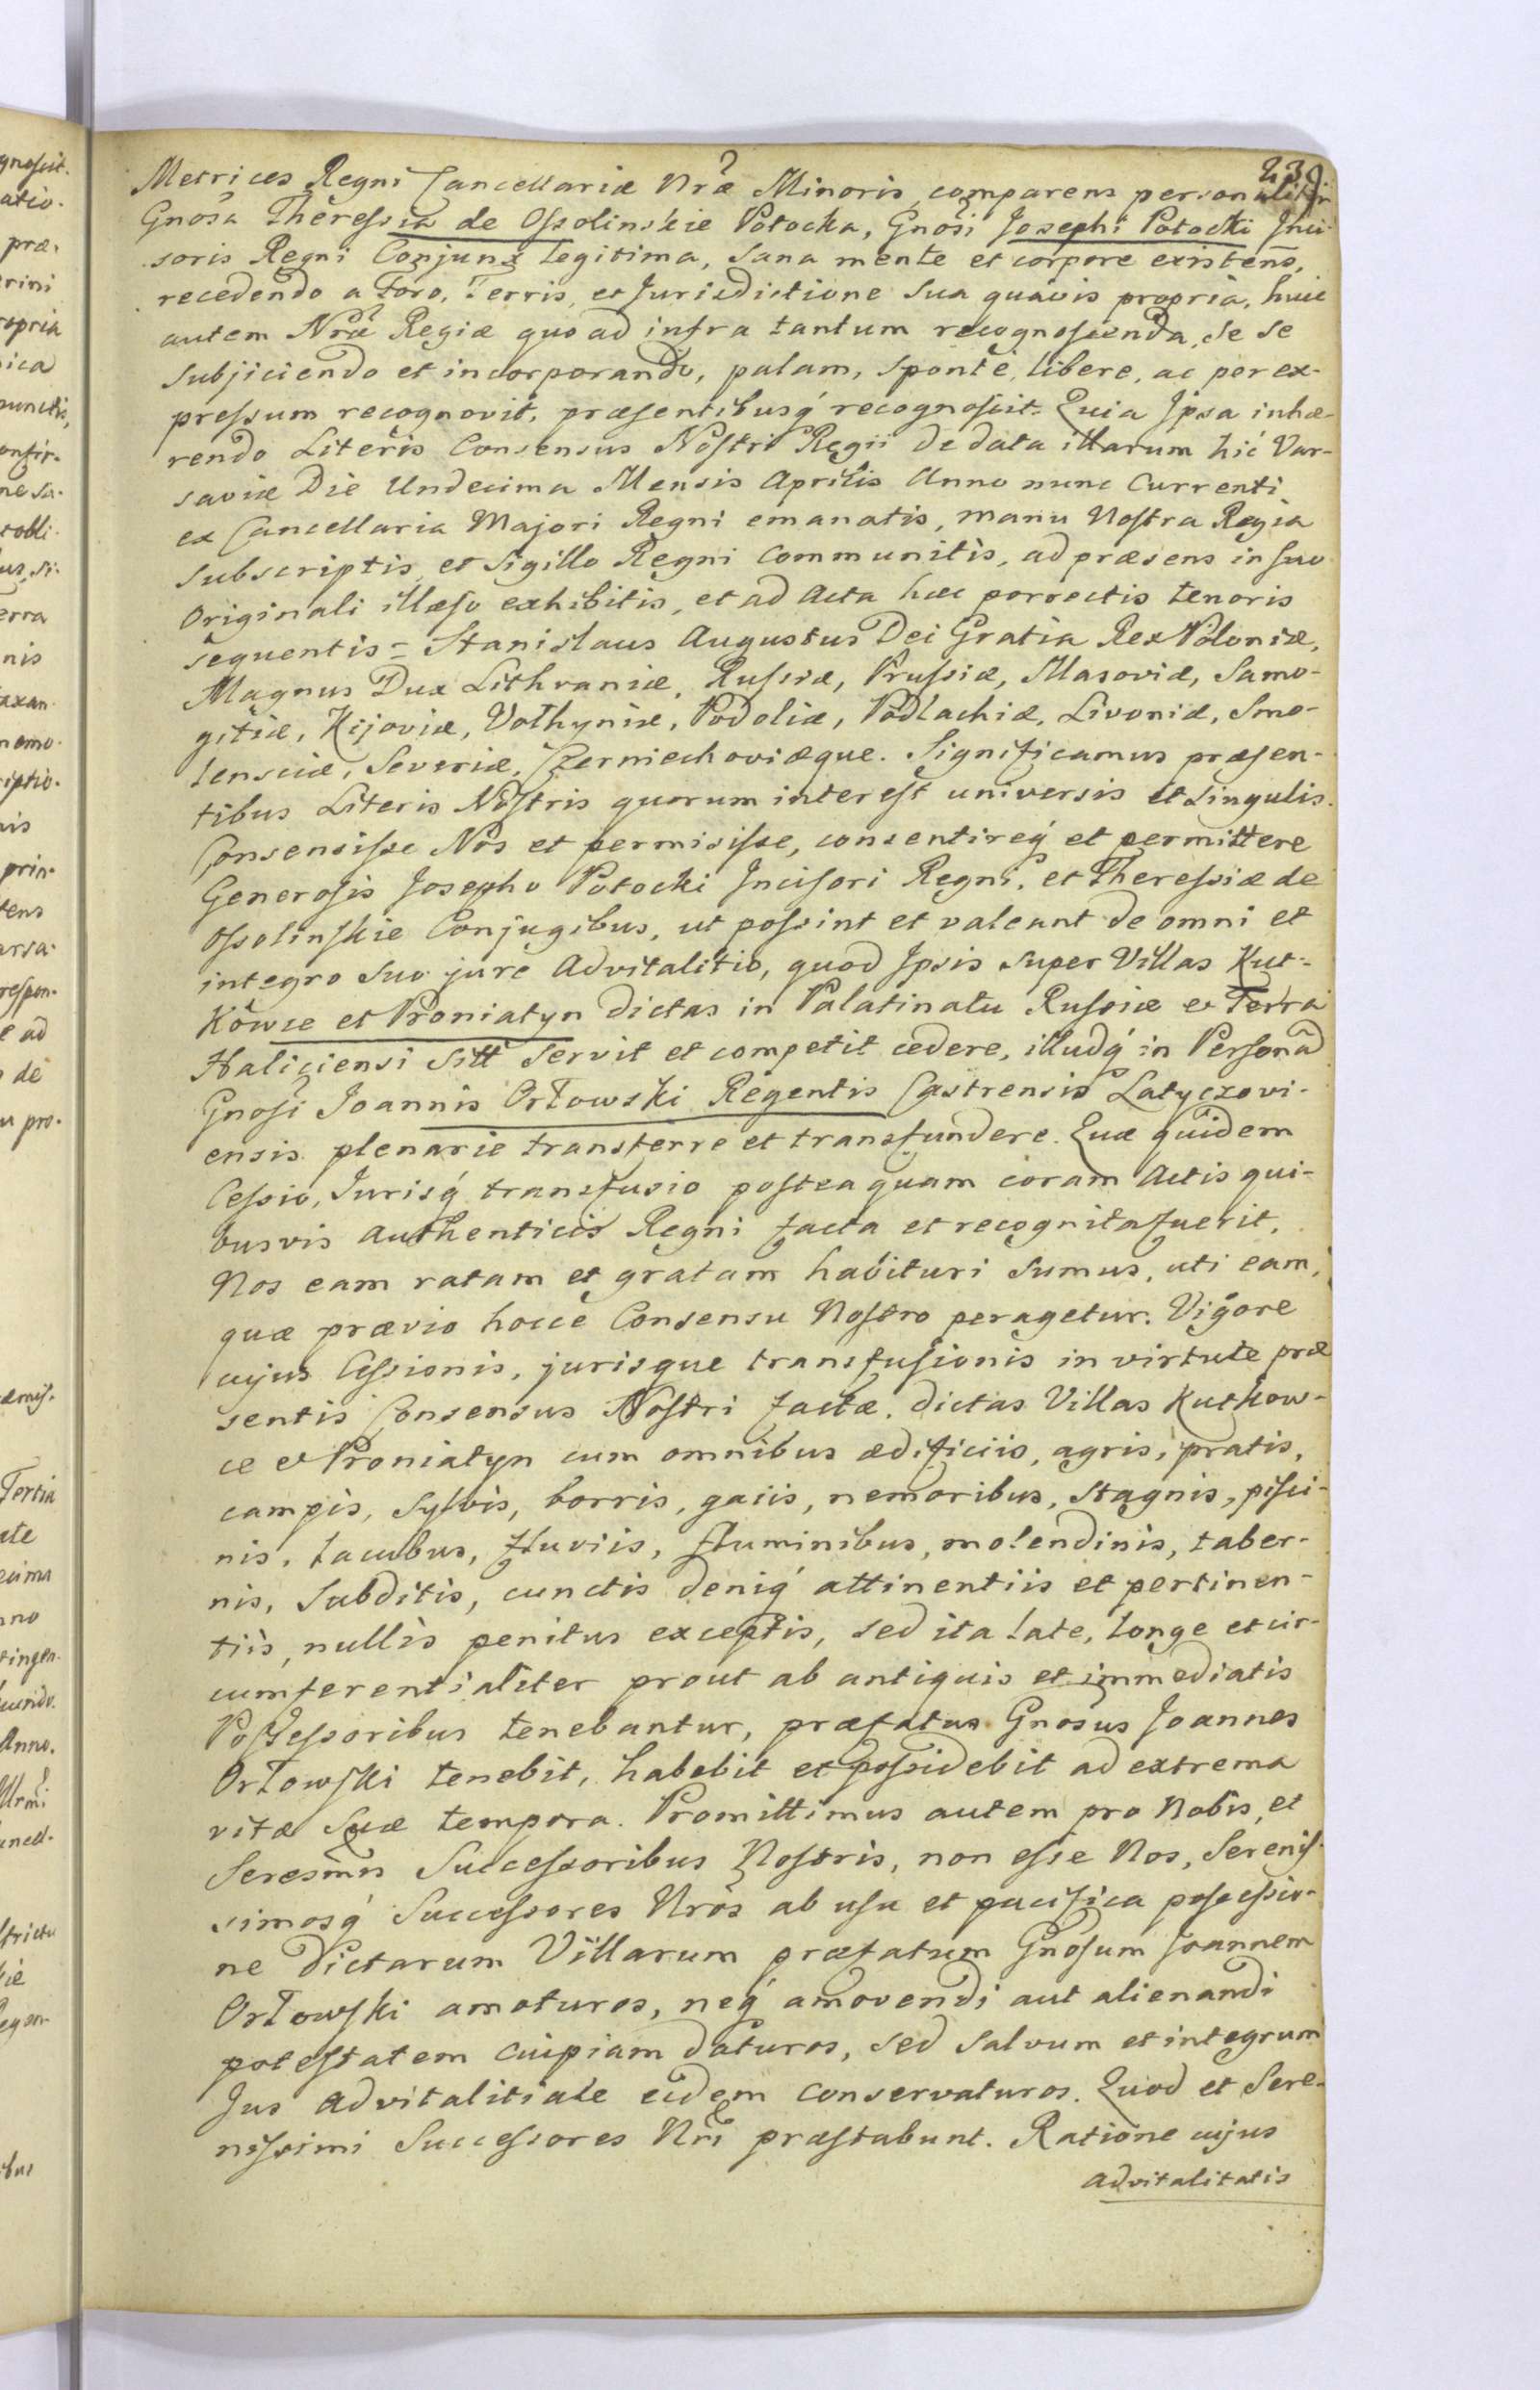 239
Metrices Regni Cancellariæ Nræ Minoris, comparens personaliter
Gnosa Theressia de Ossolinskie Potocka, Gnosi Josephi Potocki Inci-
soris Regni Conjunx legitima, sana mente et corpore existens,
recedendo a Foro, Terris, et Jurisdictione sua quavis propria, huic
autem Nræ Regiæ quo ad infra tantum recognoscenda, se se
subjiciendo et incorporando, palam, sponte, libere, ac per ex-
pressum recognovit, præsentibusq́ recognoscit. Quia Ipsa inhæ-
rendo Literis Consensus Nostri Regii de data illarum hic Var-
saviæ Die Undecima Mensis Aprilis Anno nunc Currenti
ex Cancellaria Majori Regni emanatis, manu Nostra Regia
subscriptis, et Sigillo Regni communitis, ad præsens in suo
Originali illæso exhibitis, et ad Acta hæc porrectis tenoris
sequentis = Stanislaus Augustus Dei Gratia Rex Poloniæ,
Magnus Dux Lithvaniæ, Russiæ, Prussiæ, Masoviæ, Samo-
gitiæ, Kijoviæ, Volhyniæ, Podoliæ, Podlachiæ, Livoniæ, Smo-
lensciæ, Severiæ, Czerniechoviæque. Significamus præsen-
tibus Literis Nostris quorum interest universis et singulis.
Consensisse Nos et permisisse, consentireq́ et permittere
Generosis Josepho Potocki Incisori Regni, et Theressiæ de
Ossolinskie Conjugibus, ut possint et valeant de omni et
integro suo jure Advitalitio, quod Ipsis super Villas Kut-
kowce et Proniatyn dictas in Palatinatu Russiæ et Terra
Haliciensi sitt servit et competit cedere, illudq́ in Personã
Gnosi Joannis Orłowski Regentis Castrensis Latyczovi-
ensis plenarie transferre et transfundere. Quæ quidem
Cessio, Jurisq́ transfusio posteaquam coram Actis qui-
busvis Authenticis Regni facta et recognita fuerit,
Nos eam ratam et gratam habituri sumus, uti eam,
quæ prævio hocce Consensu Nostro peragetur. Vigore
cujus Cessionis, jurisque transfusionis in virtute præ
sentis Consensus Nostri factæ, dictas Villas Kutkow-
ce et Proniatyn cum omnibus ædificiis, agris, pratis,
campis, sylvis, borris, gaiis, nemoribus, stagnis, pisci-
nis, lacubus, fluviis, fluminibus, molendinis, taber-
nis, subditis, cunctis deniq́ attinentiis et pertinen-
tiis, nullis penitus exceptis, sed ita late, longe et cir-
cumferentialiter prout ab antiquis et immediatis
Possessoribus tenebantur, præfatus Gnosus Joannes
Orłowski tenebit, habebit et possidebit ad extrema
vitæ suæ tempora. Promittimus autem pro Nobis, et
Seresmis Successoribus Nostris, non esse Nos, Serenis-
simosq́ Successores Nros ab usu et pacifica possessio-
ne dictarum Villarum præfatum Gnosum Joannem
Orłowski amoturos, neq́ amovendi aut alienandi
potestatem cuipiam daturos, sed salvum et integrum
Jus advitalitiale eidem conservaturos. Quod et Sere-
nissimi Successores Nri præstabunt. Ratione cujus
advitalitatis